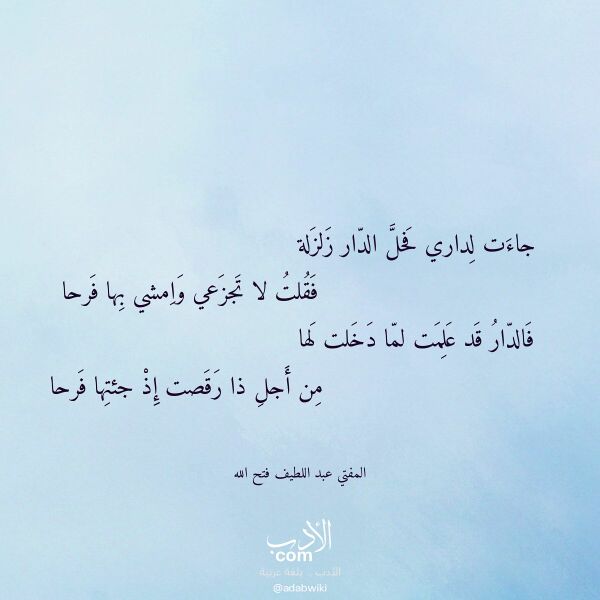 جاءَت لِداري فَحَلَّ الدّار زَلزَلة
فَقُلتُ لا تَجزَعي وَاِمشي بِها فَرحا
فَالدّارُ قَد عَلِمَت لمّا دَخَلت لَها
مِن أَجلِ ذا رَقَصت إِذْ جئتِها فَرحا
المفتي عبد اللطيف فتح الله
الأدب
com
الأدب .. بلغة عربية
@adabwiki